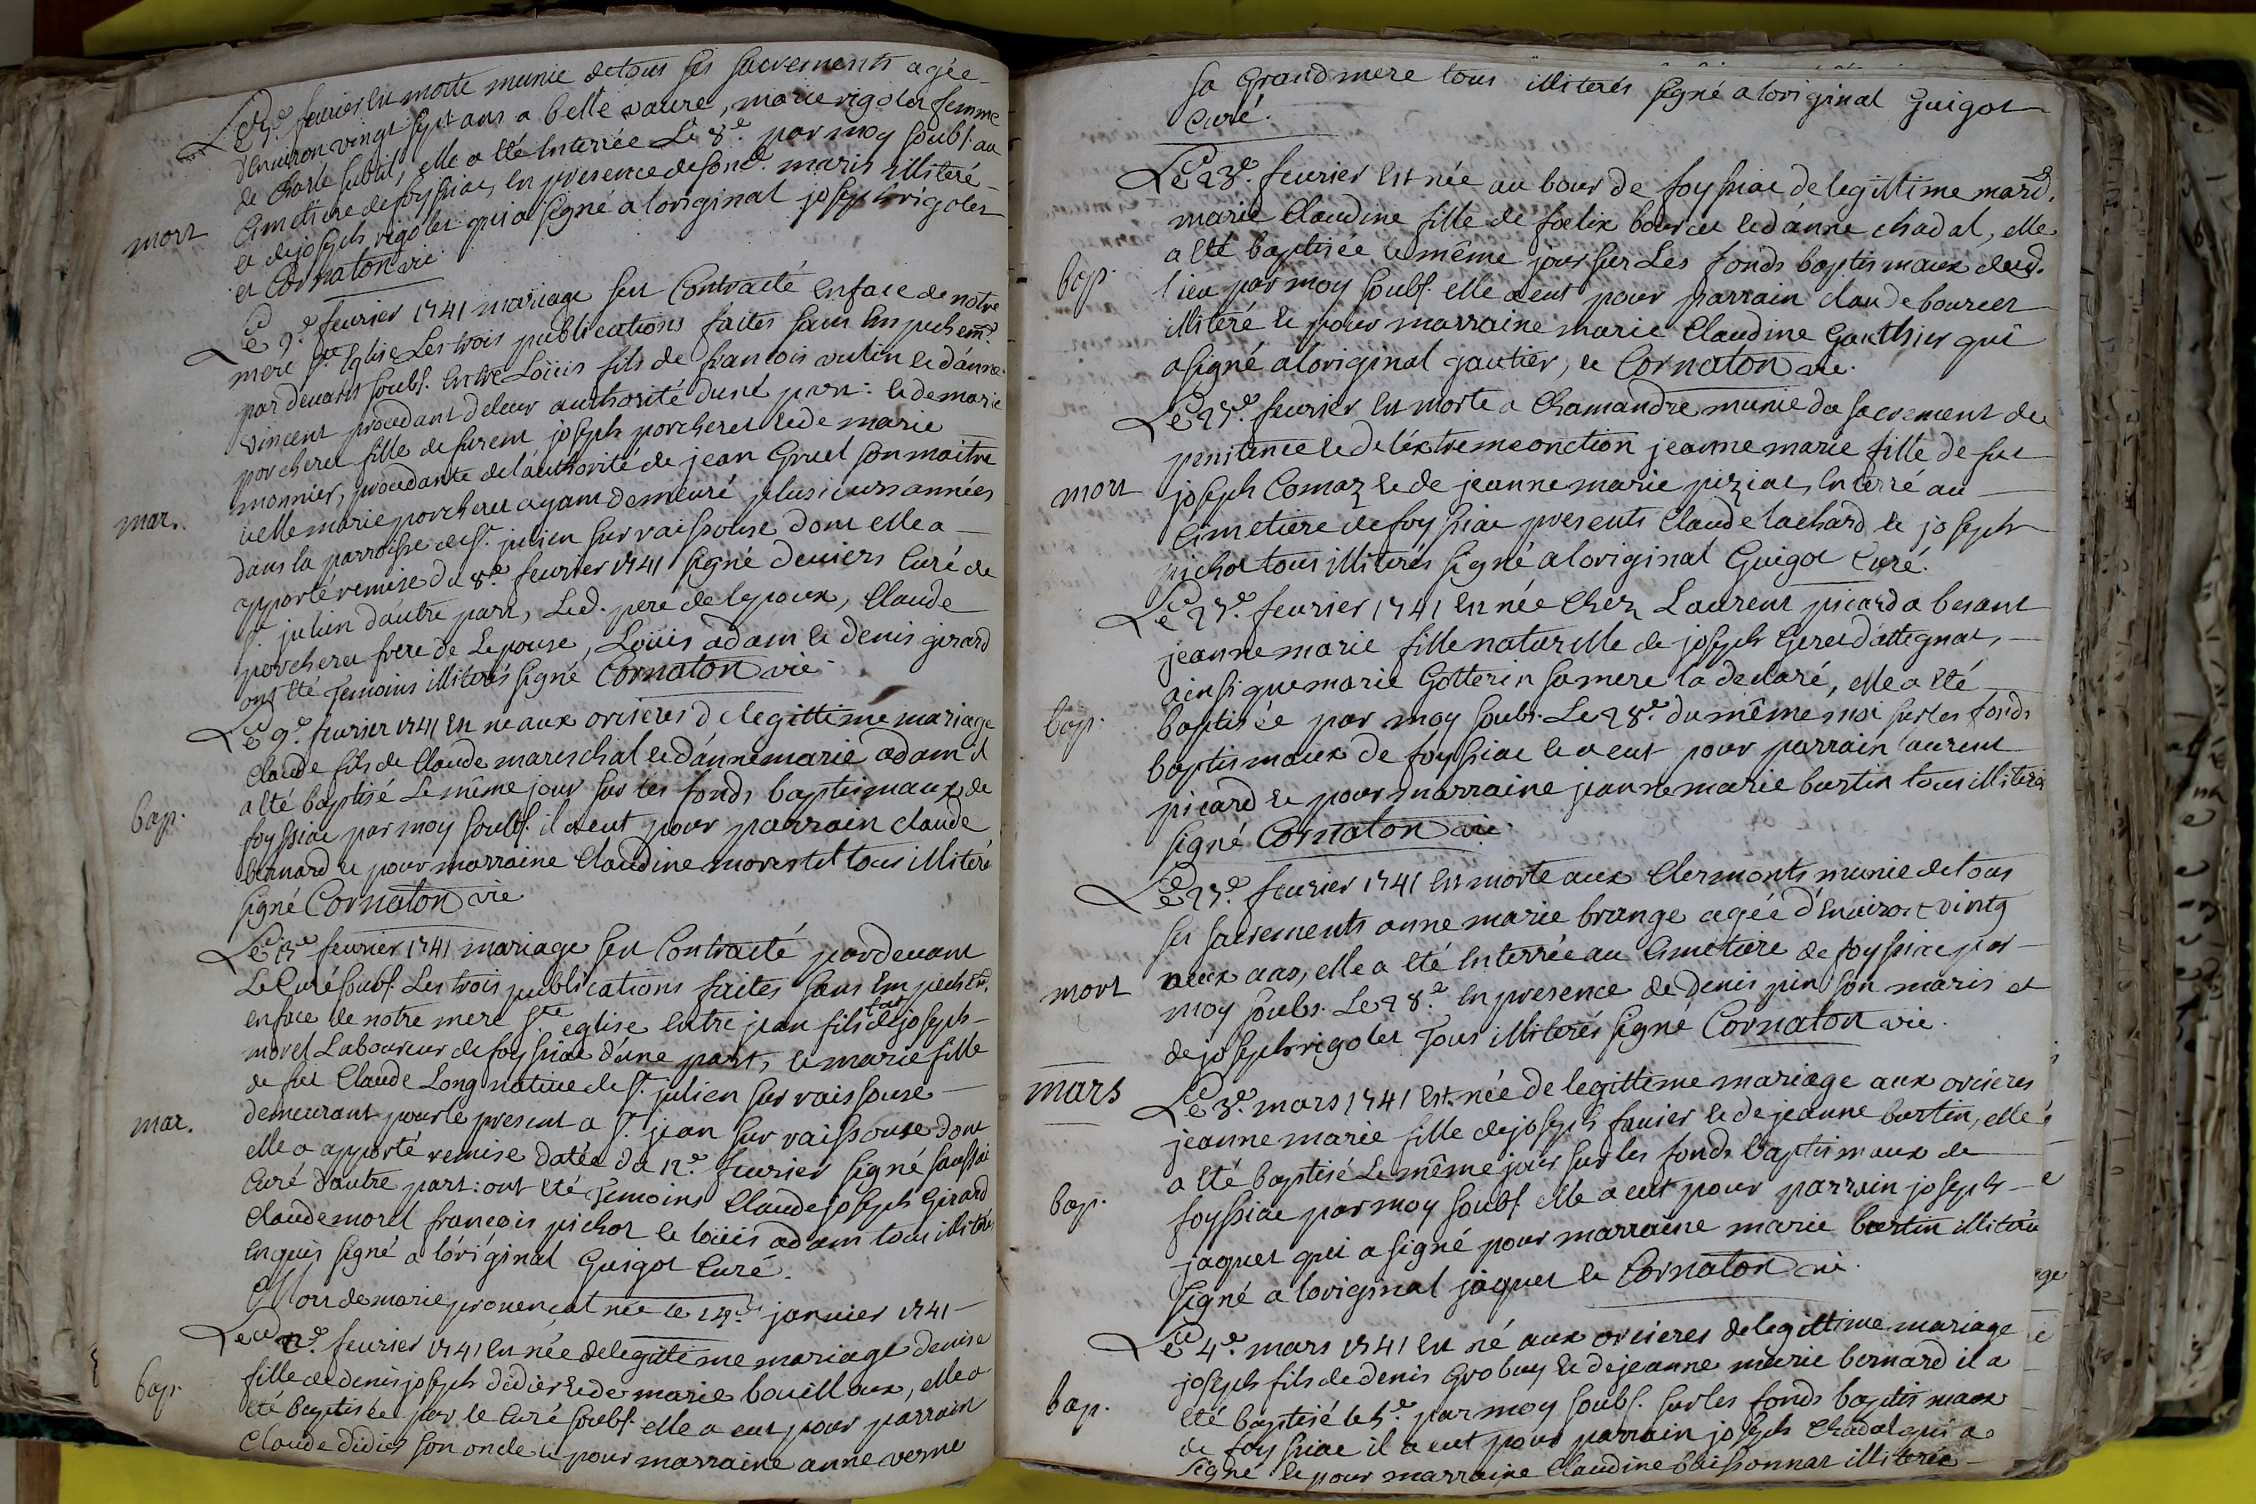 Le 7.e feurier est morte munie de tous ses sacrements agée
d'enuiron vingt sept ans a belle vavre, marie rigolet femme
de Charle subtil, elle a été Enterrée Le 8.e par moy soubs. au
Cimetiere de foyssiac, en presence de son d. maris illiteré
mort
et de joseph rigolet qui a signé a loriginal joseph rigolet
et Cornaton vic
Le 9.e feurier 1741 mariage fut Contracté en face de notre
mere s.te Eglise Les trois publications faites sans Empechem.t
par deuant soubs. Entre Loüis fils de francois vulin et d'anne
vincent procedant de leur authorité dune part: et de marie
porcheret fille de furent joseph porcheret et de marie
monnier, procedante de l'authorité de jean Gruel son maitre
mar.
icelle marie porcheret ayant demeuré plusieurs années
dans la parroisse de s.t julien sur raissouse dont elle a
apporté remise du 8.e feurier 1741 signé deuiers Curé de
s.t julien d'autre part, Led. pere de lepoux, Claude
porcheret frere de Lepouse, Loüis adam et denis girard
ont été Temoins illiterés signé Cornaton vic
Le 9.e feurier 1741 est né aux oricres de legittime mariage
Claude fils de Claude mareschal et d'anne marie adam il
a été baptisé Le même jour sur les fonds baptismaux de
bap.
foyssiac par moy soubs. il a eut pour parrain claude
bernard et pour marraine Claudine morestel tous illiteré
signé Cornaton vic
Le 13.e feurier 1741 mariage fut Contracté pardeuant
Le Curé soubs. Les trois publications faites sans Empechem.t
en face de notre mere s.te eglise Entre jean fils de feu joseph
morel Laboureur de foyssiac d'une part, et marie fille
de feu Claude Long natiue de s.t julien sur raissouse
mar.
demeurant pour le present a s.t jean sur raissouse dont
elle a apporté remise datée du 12.e feurier signé
Curé d'autre part: ont été Temoins Claude joseph Girard
Claude morel françois pichot et loüis adam tous illiterés
Enquis signé a l'original Guigot Curé.
Mort de marie prouençal née le 14.e januier 1741
Led. 12.e feurier 1741 est née de legitteme mariage denise
fille de denis joseph didier et de marie bouilloux, elle a
bap.
été baptisée par le Curé soubs. elle a eut pour parrain
Claude didier son oncle et pour marraine anne verne
sa Grand mere tous illiterés signé a loriginal Guigot
Curé.
Le 23.e feurier Est née au bour de foyssiac de legittime mariad.
marie Claudine fille de foelix bourcet et d'anne chadal, elle
a été baptisée le même jour sur Les fonds baptismaux dud.
bap.
lieu par moy soubs. elle a eut pour parrain claude bourcet
illiteré et pour marraine marie Claudine Gauthier qui
a signé a loriginal gautier, et Cornaton vic.
Le 25.e feurier est morte a Chamandre munie du sacrement de
penitence et de l'extremeonction jeanne marie fille de feu
mort
joseph Comaz et de jeanne marie piziac, Enterré au
Cimetiere de foyssiac presents Claude lachard et joseph
pichot tous illiterés signé a loriginal Guigot Curé.
Le 27.e feurier 1741 est née Chez Laurent picard a besant
jeanne marie fille naturelle de joseph Geret d'attegnat,
ainsi que marie Gotterin sa mere l'a declaré, elle a été
bap.
baptisée par moy soubs. Le 28.e du même moi sur les fonds
baptismaux de foyssiac et a eut pour parrain laurent
picard et pour marraine jeanne marie burtin tous illiterés
signé Cornaton vic.
Le 27.e feurier 1741 est morte aux Clermonts munie de tous
ses sacrements anne marie brange agée d'Enuiron vingt
mort
neux ans, elle a été Enterrée au Cimetiere de foyssiac par
moy soubs. Le 28.e En presence de Denis pin son maris et
de joseph rigolet Tous illiterés signé Cornaton vic.
mars
Le 3.e mars 1741 Est née de legitteme mariage aux oricres
jeanne marie fille de joseph fauier et de jeanne burtin, elle
a été baptisé Le même jour sur les fonds baptismaux de
bap.
foyssiac par moy soubs. elle a eut pour parrain joseph
jaquet qui a signé pour marraine marie burtin illiterée
signé a loriginal jaquet et Cornaton vic.
Le 4.e mars 1741 est né aux oricres de legittime mariage
joseph fils de denis Grobuy et de jeanne marie bernard il a
bap.
été baptisé le 5.e par moy soubs. sur les fonds baptismaux
de foyssiac il a eut pour parrain joseph Chadal qui a
signé et pour marraine Claudine baissonnat illiterée